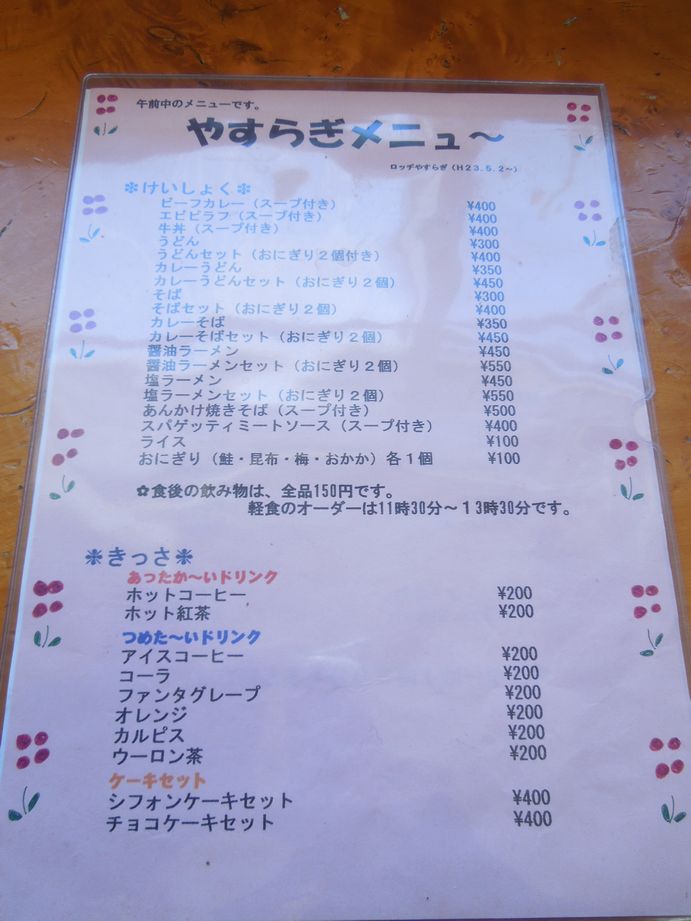 午前中のメニューです。
やすらぎメニュ～
ロッヂやすらぎ（H23.5.2～）
❇けいしょく❇
ビーフカレー（スープ付き） ¥400
エビピラフ（スープ付き） ¥400
牛丼（スープ付き） ¥400
うどん ¥300
うどんセット（おにぎり２個付き） ¥400
カレーうどん ¥350
カレーうどんセット（おにぎり２個） ¥450
そば ¥300
そばセット（おにぎり２個） ¥400
カレーそば ¥350
カレーそばセット（おにぎり２個） ¥450
醤油ラーメン ¥450
醤油ラーメンセット（おにぎり２個） ¥550
塩ラーメン ¥450
塩ラーメンセット（おにぎり２個） ¥550
あんかけ焼きそば（スープ付き） ¥500
スパゲッティミートソース（スープ付き） ¥400
ライス ¥100
おにぎり（鮭・昆布・梅・おかか）各１個 ¥100
✿食後の飲み物は、全品150円です。
軽食のオーダーは11時30分～１３時30分です。
❇きっさ❇
あったか～いドリンク
ホットコーヒー ¥200
ホット紅茶 ¥200
つめた～いドリンク
アイスコーヒー ¥200
コーラ ¥200
ファンタグレープ ¥200
オレンジ ¥200
カルピス ¥200
ウーロン茶 ¥200
ケーキセット
シフォンケーキセット ¥400
チョコケーキセット ¥400